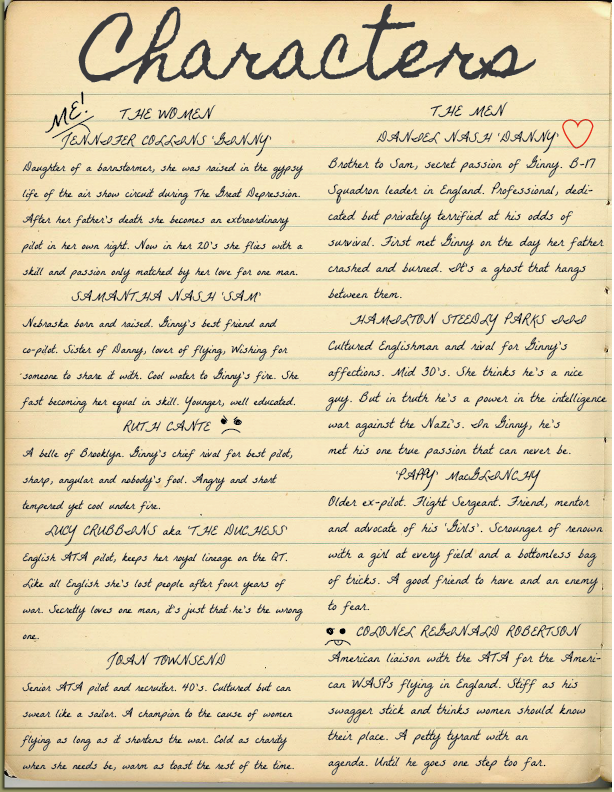 Characters
ME!
THE WOMEN
JENNIFER COLLINS 'GINNY'
Daughter of a barnstormer, she was raised in the gypsy
life of the air show circuit during The Great Depression.
After her father's death she becomes an extraordinary
pilot in her own right. Now in her 20's she flies with a
skill and passion only matched by her love for one man.
SAMANTHA NASH 'SAM'
Nebraska born and raised. Ginny's best friend and
co-pilot. Sister of Danny, lover of flying, Wishing for
someone to share it with. Cool water to Ginny's fire. She
fast becoming her equal in skill. Younger, well educated.
RUTH CANTE
A belle of Brooklyn. Ginny's chief rival for best pilot,
sharp, angular and nobody's fool. Angry and short
tempered yet cool under fire.
LUCY CRUBBINS aka 'THE DUCHESS'
English ATA pilot, keeps her royal lineage on the QT.
Like all English she's lost people after four years of
war. Secretly loves one man, it's just that he's the wrong
one.
JOAN TOWNSEND
Senior ATA pilot and recruiter. 40's. Cultured but can
swear like a sailor. A champion to the cause of women
flying as long as it shortens the war. Cold as charity
when she needs be, warm as toast the rest of the time.
THE MEN
DANIEL NASH 'DANNY'
Brother to Sam, secret passion of Ginny. B-17
Squadron leader in England. Professional, dedi-
cated but privately terrified at his odds of
survival. First met Ginny on the day her father
crashed and burned. It's a ghost that hangs
between them.
HAMILTON STEEDLY PARKS III
Cultured Englishman and rival for Ginny's
affections. Mid 30's. She thinks he's a nice
guy. But in truth he's a power in the intelligence
war against the Nazi's. In Ginny, he's
met his one true passion that can never be.
'PAPPY' MacGLINCHY
Older ex-pilot. Flight Sergeant. Friend, mentor
and advocate of his 'Girls'. Scrounger of renown
with a girl at every field and a bottomless bag
of tricks. A good friend to have and an enemy
to fear.
COLONEL REGINALD ROBERTSON
American liaison with the ATA for the Ameri-
can WASPs flying in England. Stiff as his
swagger stick and thinks women should know
their place. A petty tyrant with an
agenda. Until he goes one step too far.